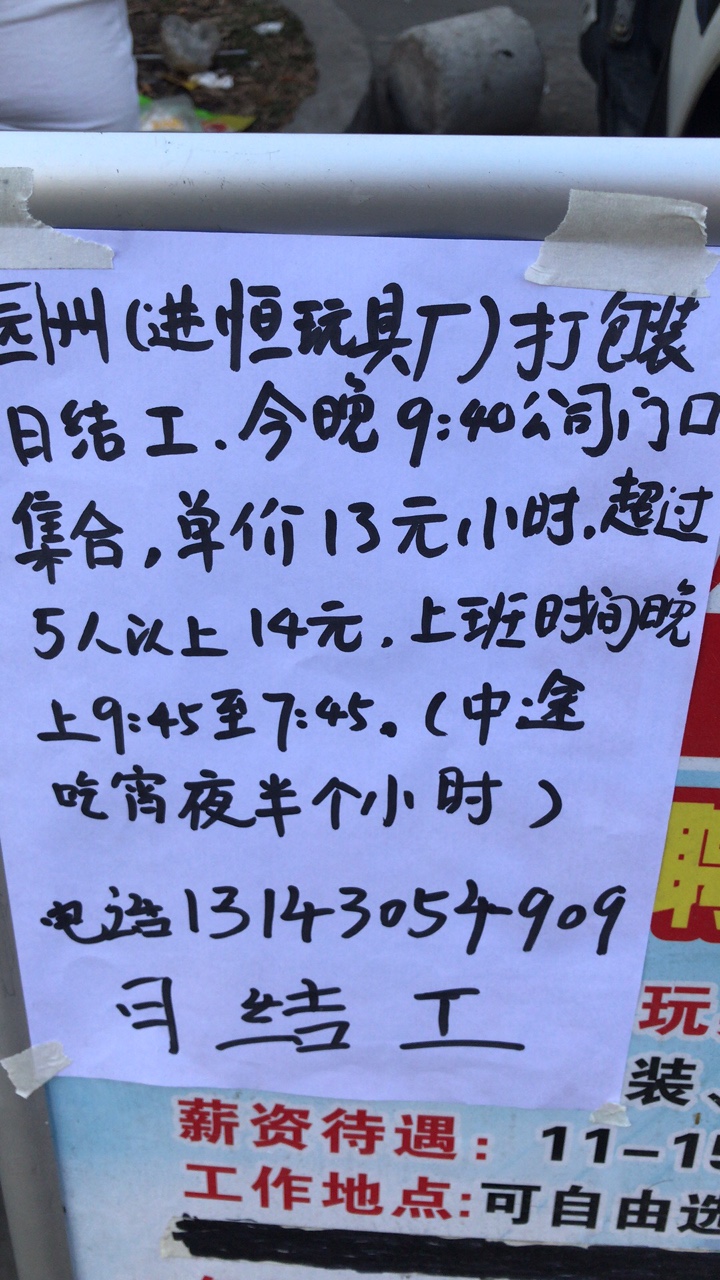 园州(进恒玩具厂)打包装
日结工.今晚9:40公司门口
集合,单价13元小时.超过
5人以上14元.上班时间晚
上9:45至7:45。(中途
吃宵夜半个小时)
电话13143054909
日结工
聘
玩
装、
薪资待遇：11-15
工作地点:可自由选